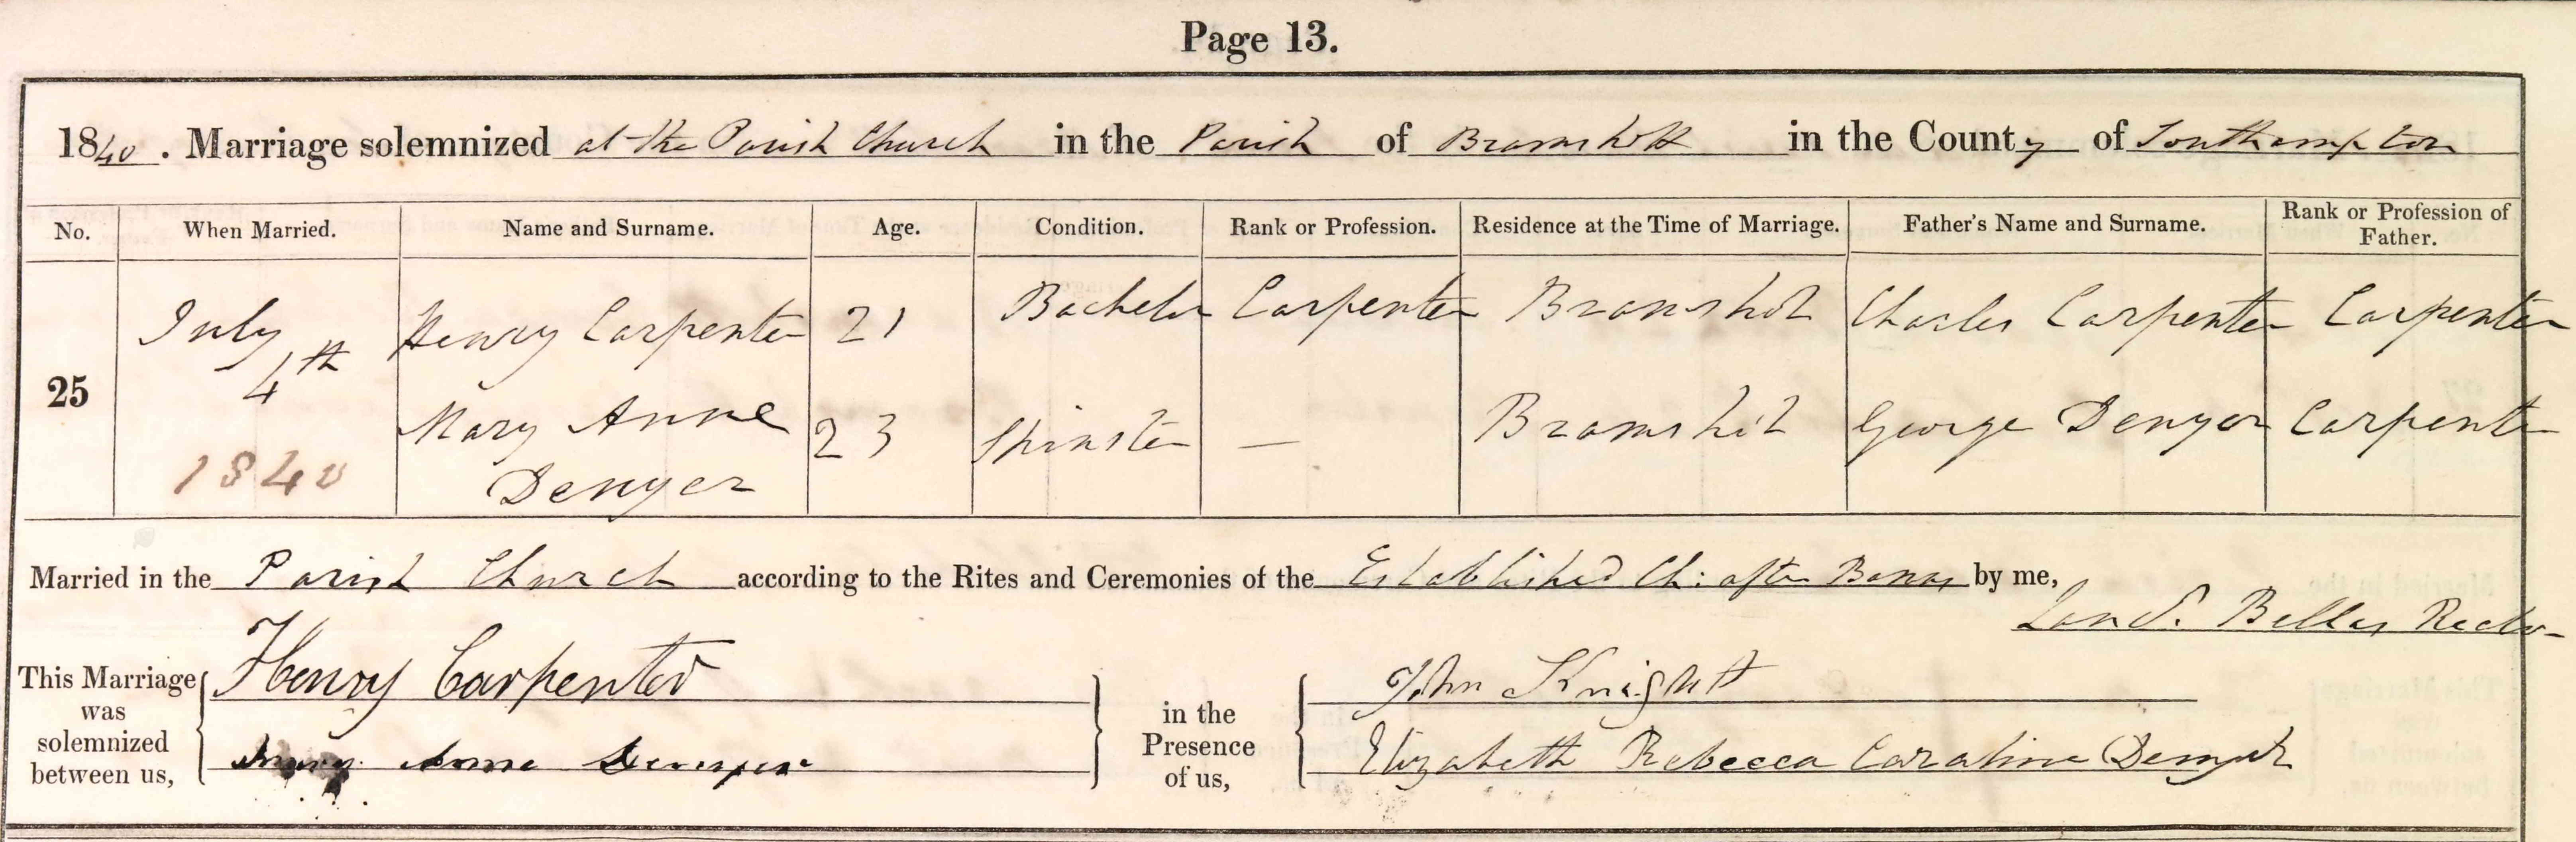 Page 13.
1840. Marriage solemnized at the Parish Church in the Parish of Bramshott in the County of Southampton
No. When Married. Name and Surname. Age. Condition. Rank or Profession. Residence at the Time of Marriage. Father's Name and Surname. Rank or Profession of Father.
25 July 4th 1840 Henry Carpenter 21 Bachelor Carpenter Bramshot Charles Carpenter Carpenter
Mary Anne Denyer 23 Spinster — Bramshot George Denyer Carpenter
Married in the Parish Church according to the Rites and Ceremonies of the Established Ch: after Banns by me,
Bellas Rector
This Marriage was solemnized between us, Henry Carpenter in the Presence of us, John Knight
Mary Anne Denyer Elizabeth Rebecca Caraline Denyer